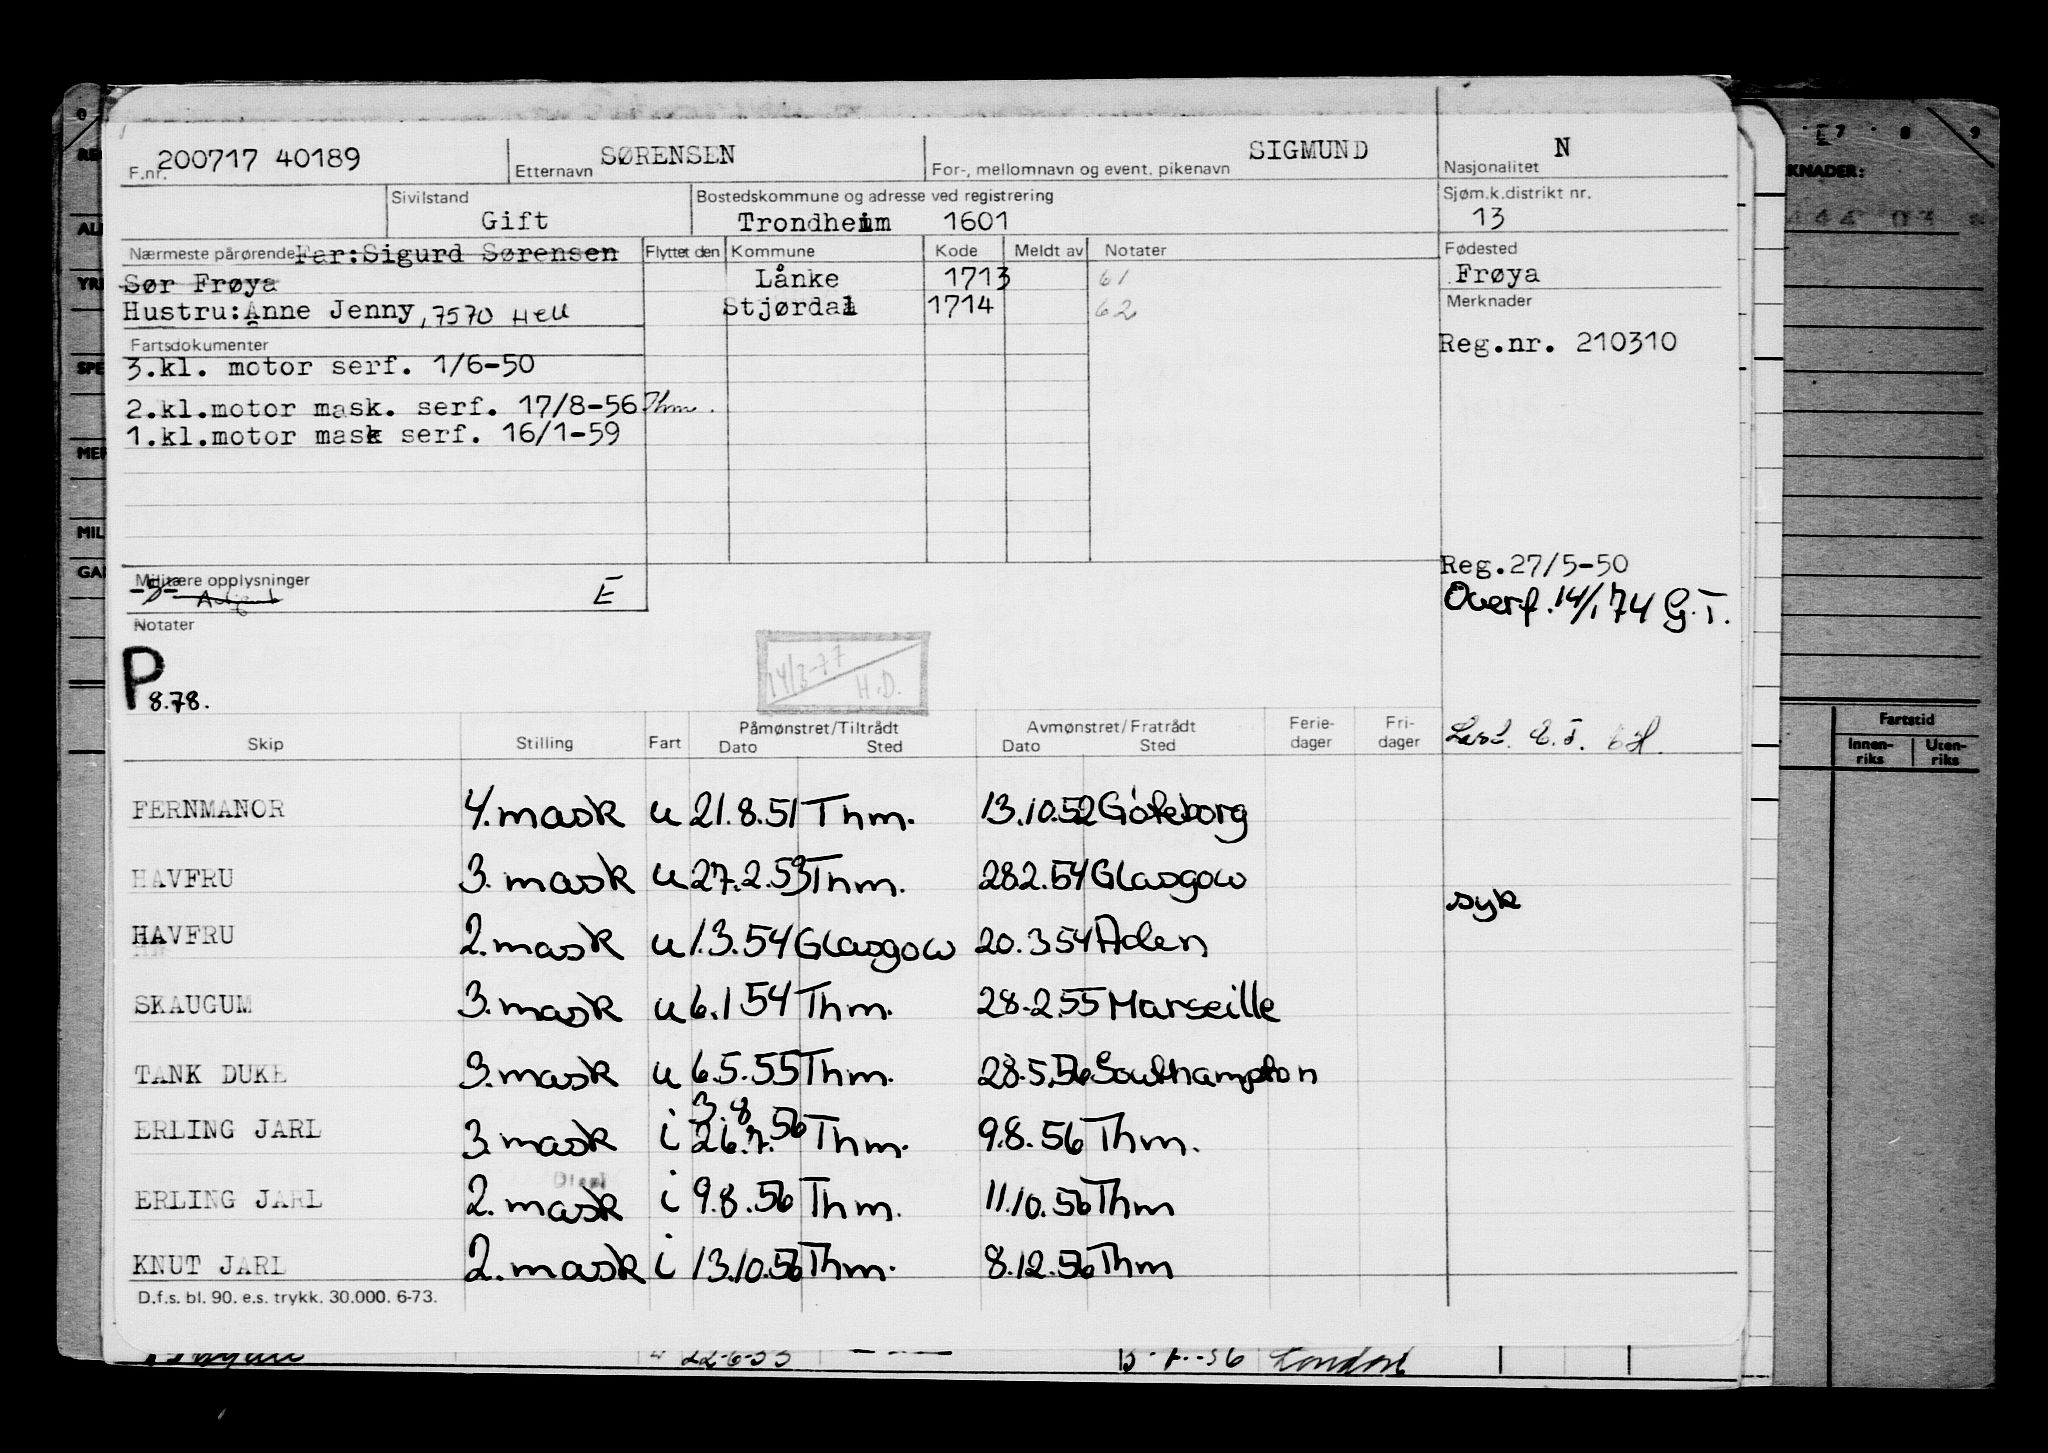 200717 40189
F.nr.
SØRENSEN
Etternavn
SIGMUND
For-, mellomnavn og event. pikenavn
N
Nasjonalitet
Sivilstand
Gift
Bostedskommune og adresse ved registrering
Trondheim 1601
Sjøm.k.distrikt nr.
13
Nærmeste pårørende Far:Sigurd Sørensen
Sør Frøya
Hustru:Anne Jenny, 7570 Hell
Flyttet den Kommune Kode Meldt av Notater
Lånke 1713 61
Stjørdal 1714 62
Fødested
Frøya
Merknader
Reg.nr. 210310
Fartsdokumenter
3.kl. motor serf. 1/6-50
2.kl.motor mask. serf. 17/8-56 Thm.
1.kl.motor mask serf. 16/1-59
Reg.27/5-50
Overf. 14/1 74 G.T.
Militære opplysninger
E
Notater
P 8.78.
14/3-77
H.D.
Skip Stilling Fart Påmønstret/Tiltrådt Dato Sted Avmønstret/Fratrådt Dato Sted Ferie-dager Fri-dager
FERNMANOR 4. mask u 21.8.51 Thm. 13.10.52 Göteborg
HAVFRU 3. mask u 27.2.53 Thm. 28.2.54 Glasgow
syk
HAVFRU 2. mask u 1.3.54 Glasgow 20.3.54 Aden
SKAUGUM 3. mask u 6.1 54 Thm. 28.2.55 Marseille
TANK DUKE 3. mask u 6.5.55 Thm. 28.5.56 Southampton
3.8
ERLING JARL 3. mask i 26.7.56 Thm. 9.8.56 Thm.
ERLING JARL 2. mask i 9.8.56 Thm. 11.10.56 Thm
KNUT JARL 2. mask i 13.10.56 Thm. 8.12.56 Thm
D.f.s. bl. 90. e.s. trykk. 30.000. 6-73.
22-6-55 London
7 8 9
KNADER:
Fartstid
Innen-riks Uten-riks